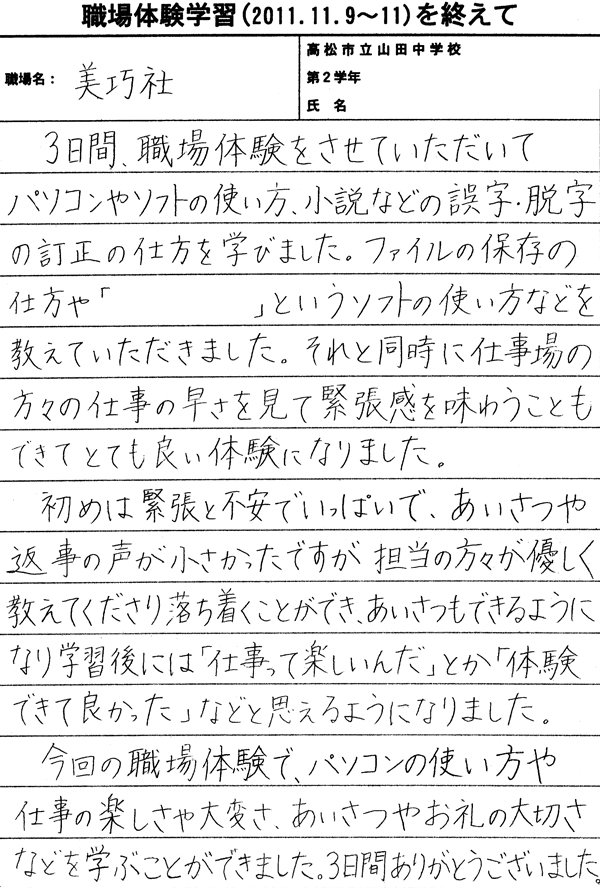 職場体験学習(2011.11.9～11)を終えて
職場名： 美巧社
高松市立山田中学校
第2学年
氏 名
3日間、職場体験をさせていただいて
パソコンやソフトの使い方、小説などの誤字・脱字
の訂正の仕方を学びました。ファイルの保存の
仕方や「　　　　　」というソフトの使い方などを
教えていただきました。それと同時に仕事場の
方々の仕事の早さを見て緊張感を味わうことも
できてとても良い体験になりました。
初めは緊張と不安でいっぱいで、あいさつや
返事の声が小さかったですが 担当の方々が優しく
教えてくださり落ち着くことができ、あいさつもできるように
なり学習後には「仕事って楽しいんだ」とか「体験
できて良かった」などと思えるようになりました。
今回の職場体験で、パソコンの使い方や
仕事の楽しさや大変さ、あいさつやお礼の大切さ
などを学ぶことができました。3日間ありがとうございました。